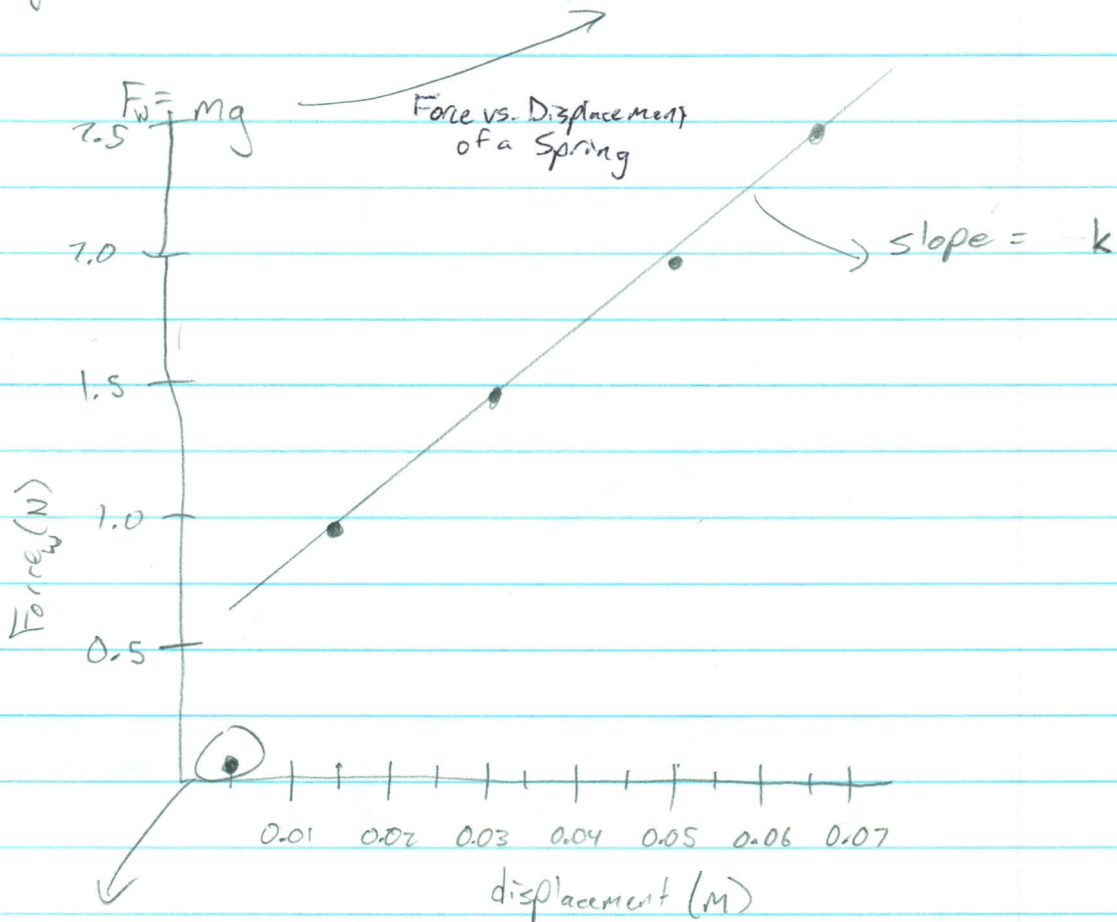 F_w = mg
Force vs. Displacement
of a Spring
2.5
2.0
slope = k
1.5
1.0
0.5
Force_w (N)
0.01 0.02 0.03 0.04 0.05 0.06 0.07
displacement (m)